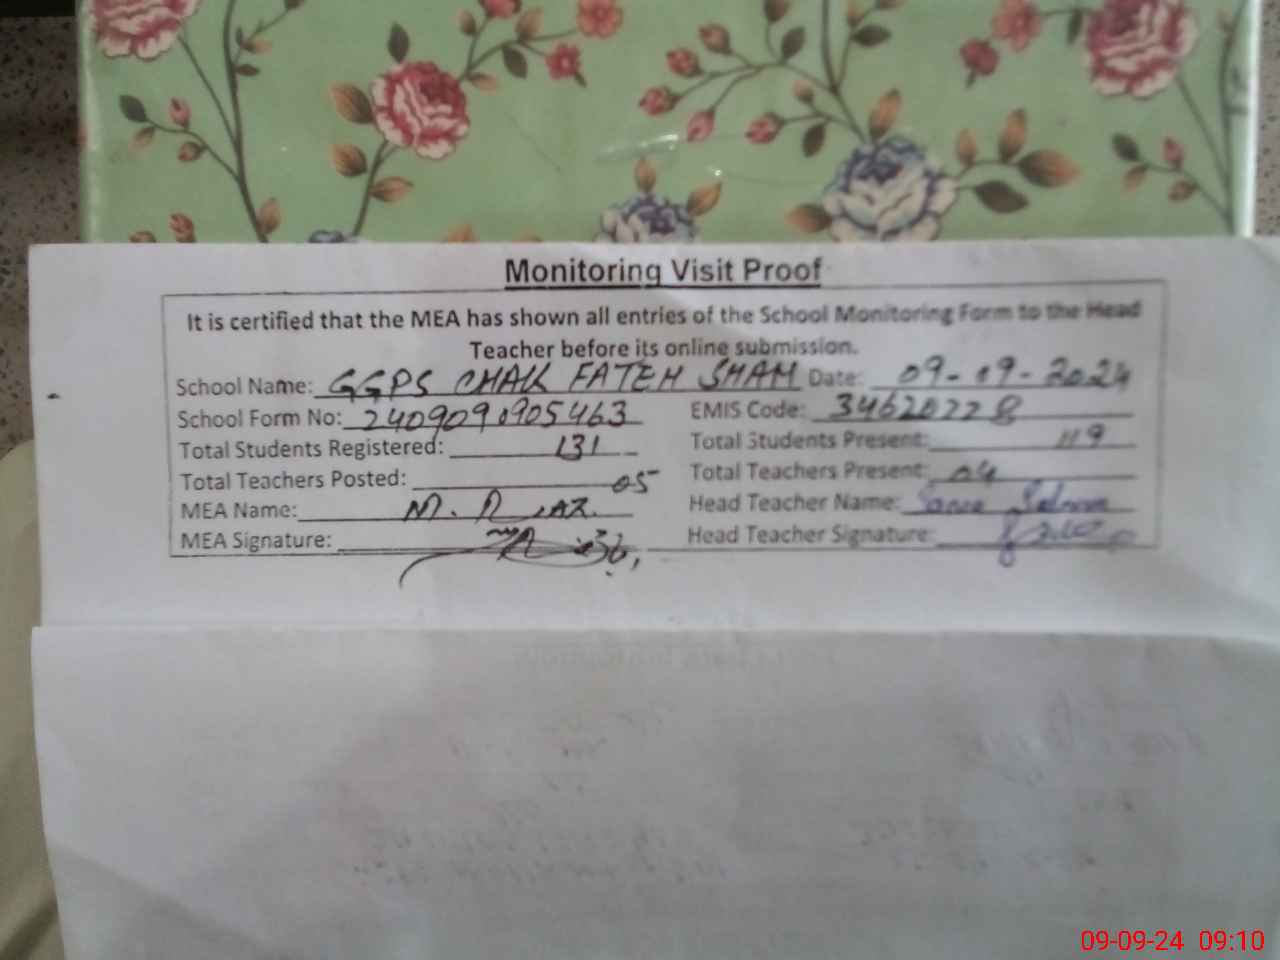 Monitoring Visit Proof
It is certified that the MEA has shown all entries of the School Monitoring Form to the Head
Teacher before its online submission.
School Name: GGPS CHAK FATEH SHAH Date: 09-09-2024
School Form No: 2409090905463 EMIS Code: 34620228
Total Students Registered: 131 Total Students Present: 119
Total Teachers Posted: 05 Total Teachers Present: 04
MEA Name: M. RIAZ. Head Teacher Name:
MEA Signature: Head Teacher Signature:
09-09-24 09:10